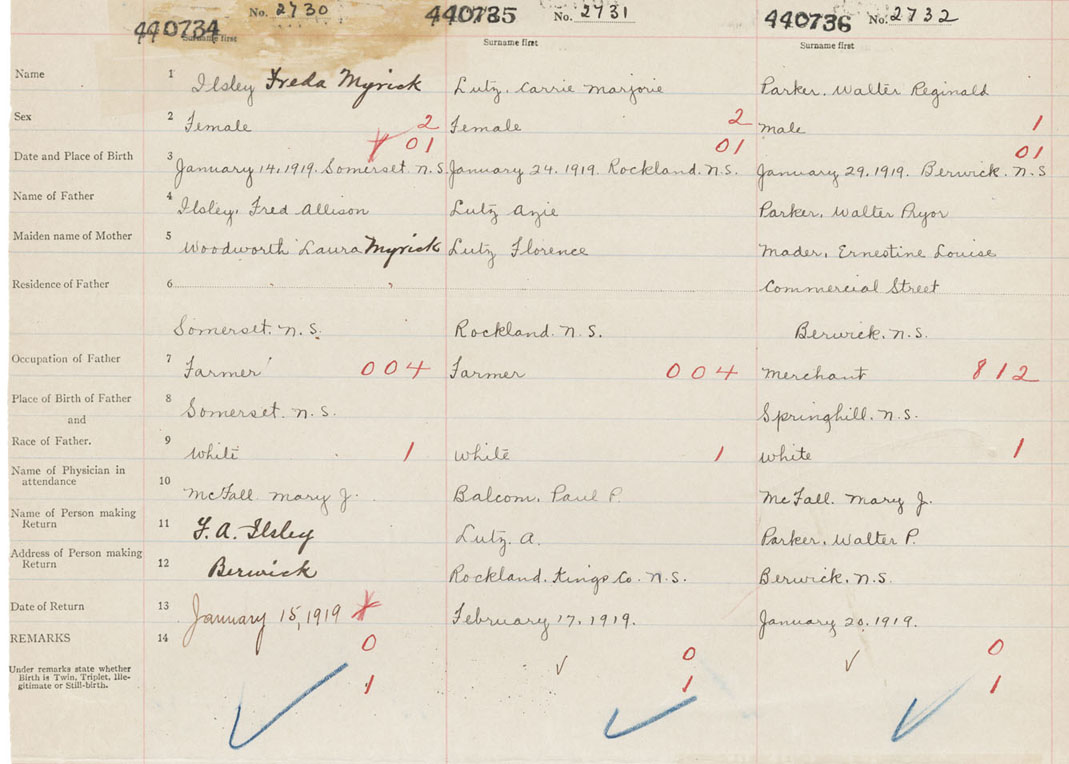 440734 No. 2730 440735 No. 2731 440736 No. 2732
Surname first Surname first Surname first
Name 1 Ilsley Freda Myrick Lutz, Carrie Marjorie Parker, Walter Reginald
Sex 2 Female 2 Female 2 Male 1
01 01 01
Date and Place of Birth 3 January 14, 1919. Somerset. N.S. January 24. 1919. Rockland. N.S. January 29, 1919. Berwick. N.S
Name of Father 4 Ilsley, Fred Allison Lutz Azie Parker, Walter Pryor
Maiden name of Mother 5 Woodworth Laura Myrick Lutz Florence Mader, Ernestine Louise
Residence of Father 6 Commercial Street
Somerset. N.S. Rockland. N.S. Berwick. N.S.
Occupation of Father 7 Farmer 004 Farmer 004 Merchant 812
Place of Birth of Father 8 Somerset. N.S. Springhill. N.S.
and
Race of Father. 9 White 1 White 1 White 1
Name of Physician in
attendance 10 McFall. Mary J. Balcom, Paul P. McFall. Mary J.
Name of Person making
Return 11 F. A. Ilsley Lutz. A. Parker, Walter P.
Address of Person making
Return 12 Berwick Rockland. Kings Co. N.S. Berwick. N.S.
Date of Return 13 January 15, 1919 February 17, 1919. January 20, 1919.
REMARKS 14 0 0 0
Under remarks state whether
Birth is Twin, Triplet, Ille-
gitimate or Still-birth. 1 1 1